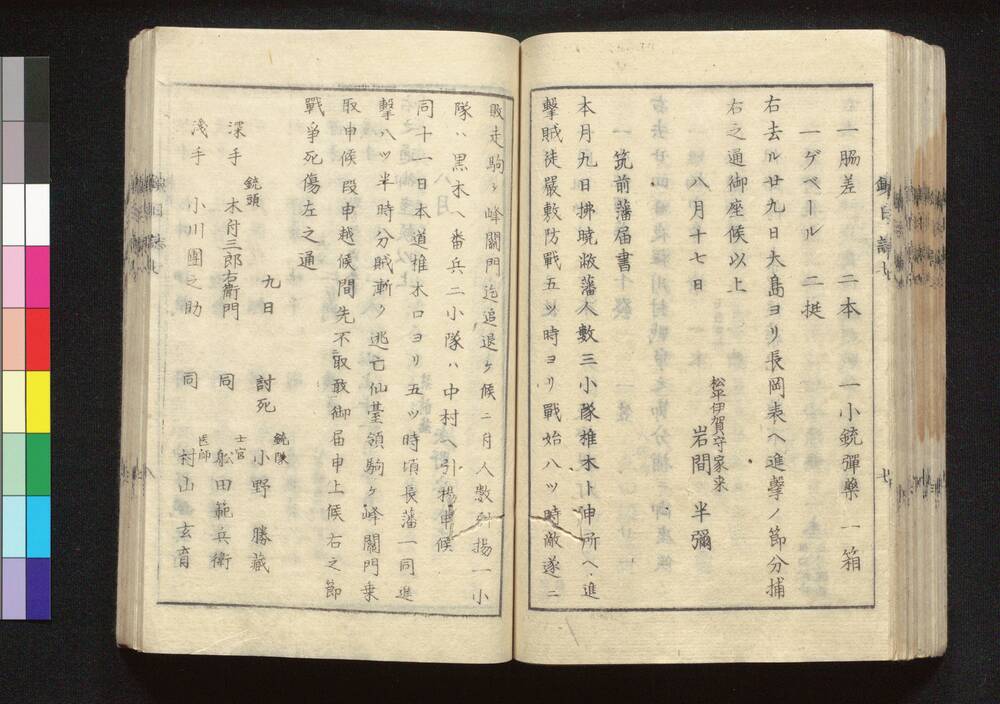 一脇差　二本　一小銃彈藥　一箱
一ゲベール　二挺
右去ル廿九日大島ヨリ長岡表ヘ進撃ノ節分捕
右之通御座候以上
八月十七日
松平伊賀守家来
岩間　半彌
筑前藩届書
本月九日拂暁敝藩人数三小隊椎木ト申所ヘ進
撃賊徒嚴敷防戰五ツ時ヨリ戰始八ツ時敵遂ニ
敗走駒ヶ峰關門迄追退ケ候ニ付人数引揚一小
隊ハ黒木ヘ番兵二小隊ハ中村ヘ引揚申候
同十一日本道椎木口ヨリ五ツ時頃長藩一同進
撃八ツ半時分賊漸ク逃亡仙臺領駒ヶ峰關門乗
取申候段申越候間先不取敢御届申上候右之節
戰爭死傷左之通
九日
討死　銃隊　小野　勝藏
深手　銃頭　木付三郎右衛門
同　士官　舩田範兵衛
浅手　小川團之助
同　医師　村山玄育